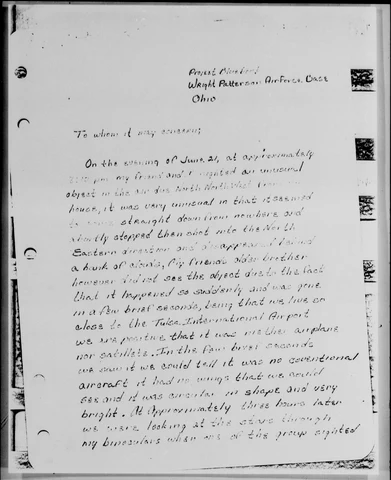 Project Bluebook
Wright Patterson Air Force Base
Ohio
To whom it may concern;
On the evening of June 21, at approximately
pm my friend and I sighted an unusual
object in the air due North Northwest from
house, it was very unusual in that it seemed
to come straight down from nowhere and
stopped then shot into the North
Eastern direction and disappeared behind
a bank of clouds, My friends older brother
however did not see the object due to the fact
that it happened so suddenly and was gone
in a few brief seconds, being that we live so
close to the Tulsa International Airport
we are positive that it was neither airplane
nor satillite. In the few brief seconds
we saw it we could tell it was no coventional
aircraft it had no wings that we could
see and it was circular in shape and very
bright. At Approximately three hours later
we were looking at the stars through
my binoculars when one of the group sighted